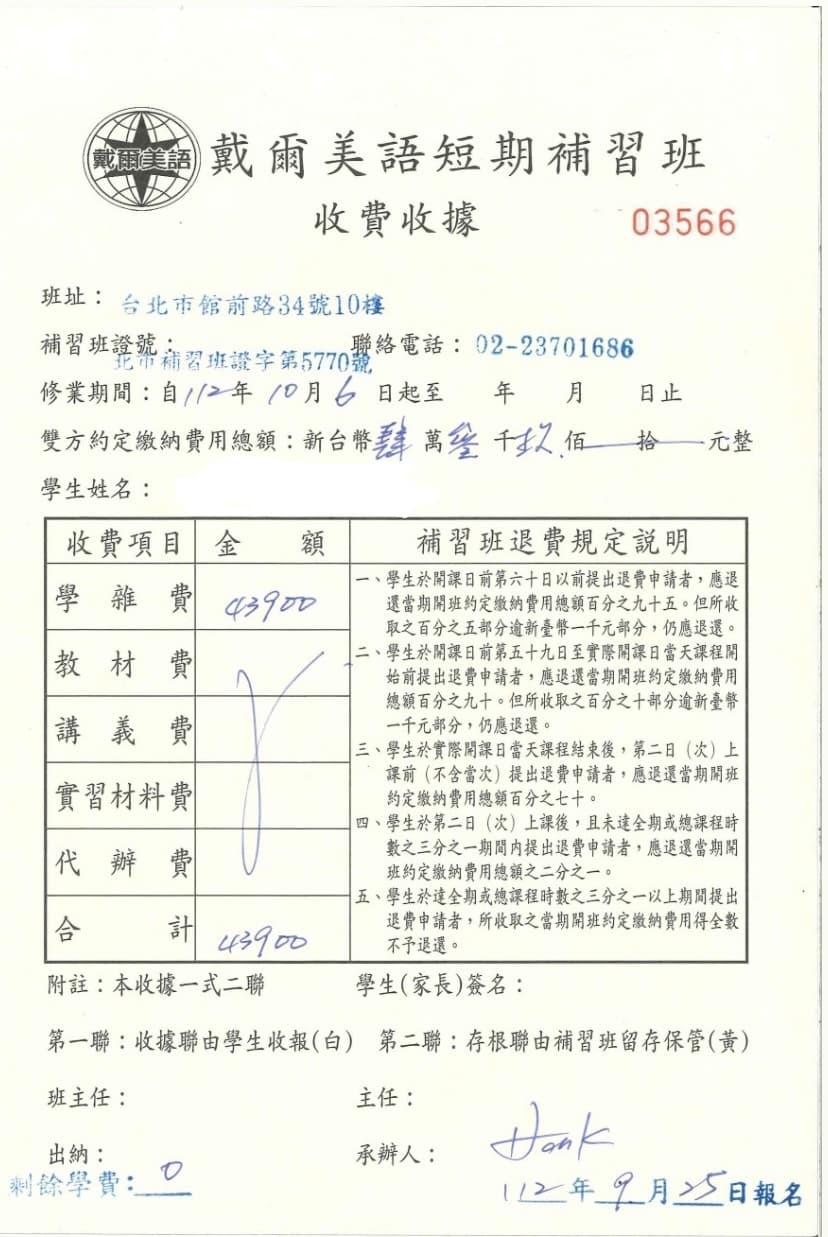 戴爾美語
戴爾美語短期補習班
收費收據
03566
班址：台北市館前路34號10樓
補習班證號：北市補習班證字第5770號 聯絡電話：02-23701686
修業期間：自112年10月6日起至 年 月 日止
雙方約定繳納費用總額：新台幣肆萬叁千玖佰 拾 元整
學生姓名：
收費項目 金額 補習班退費規定說明
學雜費 43900
教材費
講義費
實習材料費
代辦費
合計 43900
一、學生於開課日前第六十日以前提出退費申請者，應退
還當期開班約定繳納費用總額百分之九十五。但所收
取之百分之五部分逾新臺幣一千元部分，仍應退還。
二、學生於開課日前第五十九日至實際開課日當天課程開
始前提出退費申請者，應退還當期開班約定繳納費用
總額百分之九十。但所收取之百分之十部分逾新臺幣
一千元部分，仍應退還。
三、學生於實際開課日當天課程結束後，第二日（次）上
課前（不含當次）提出退費申請者，應退還當期開班
約定繳納費用總額百分之七十。
四、學生於第二日（次）上課後，且未達全期或總課程時
數之三分之一期間內提出退費申請者，應退還當期開
班約定繳納費用總額之二分之一。
五、學生於達全期或總課程時數之三分之一以上期間提出
退費申請者，所收取之當期開班約定繳納費用得全數
不予退還。
附註：本收據一式二聯 學生(家長)簽名：
第一聯：收據聯由學生收報(白) 第二聯：存根聯由補習班留存保管(黃)
班主任： 主任：
出納： 承辦人：Hank
剩餘學費：0 112年9月25日報名